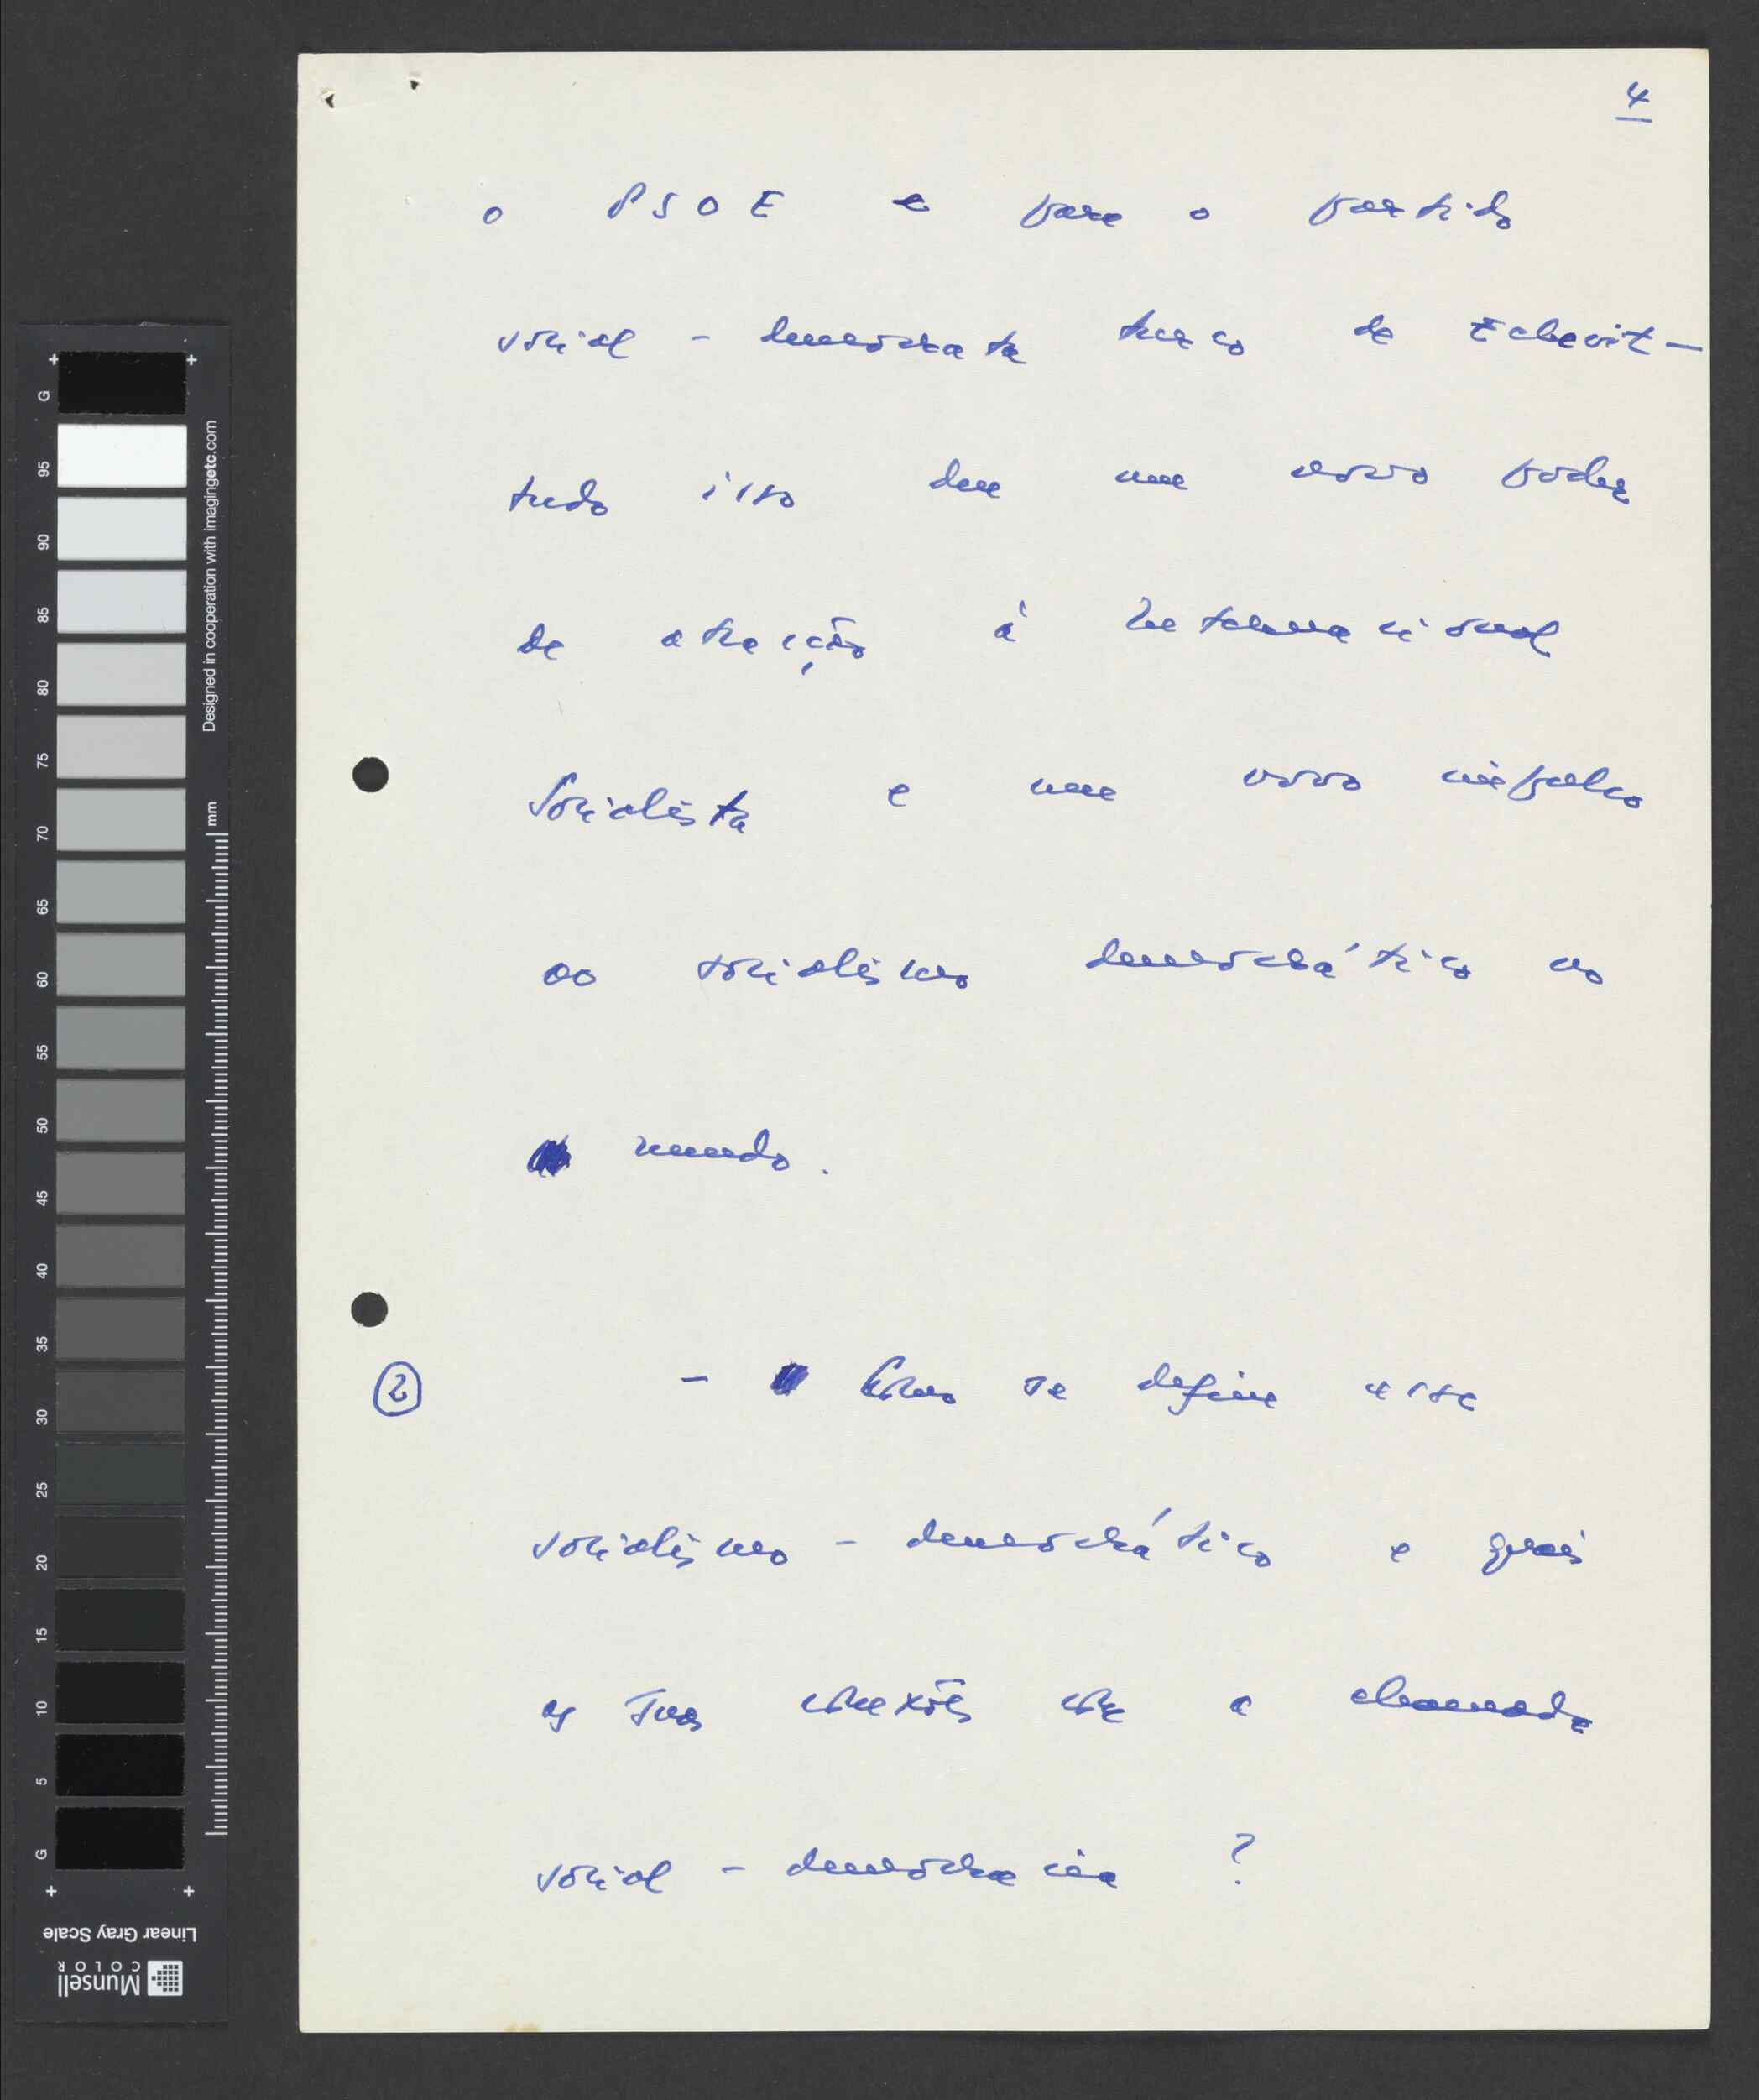 4
o PSOE e para o partido
social - democrata turco de Echevit -
tudo isso deu um novo poder
de atracção à Internacional
Socialista e um novo impulso
ao socialismo democrático no
mundo.
② - Como se define esse
socialismo - democrático e quais
as suas conexões com a chamada
social - democracia ?
G 95 90 85 80 75 70 65 60 55 50 45 40 35 30 25 20 15 10 5 G
mm Designed in cooperation with imagingetc.com
Linear Gray Scale
Munsell
COLOR